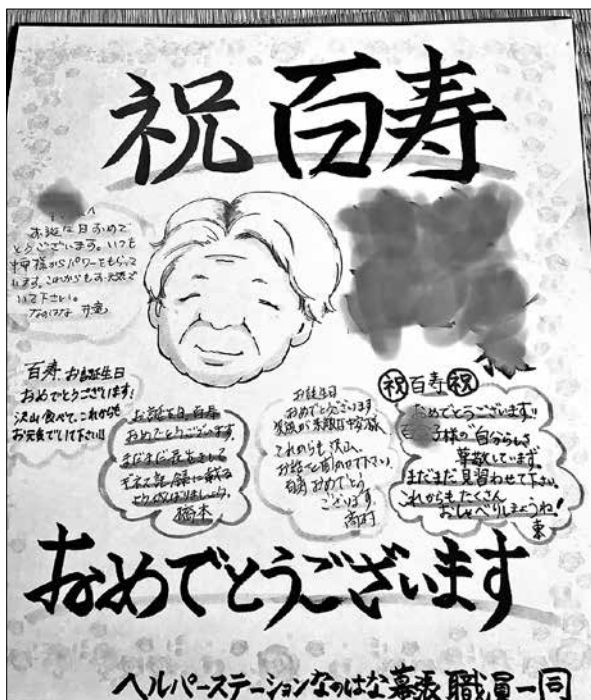 祝 百寿
お誕生日おめで
とうございます。いつも
様からパワーをもらって
います。これからもお元気で
いて下さい。
なのはな
百寿、お誕生日
おめでとうございます!
沢山食べて、これからも
お元気でいて下さい!!
お誕生日、百寿
おめでとうございます。
まだまだ長生きして
ギネス記録に載る
ようがんばりましょう。
橋本
お誕生日
おめでとうございます
笑顔が素敵な
これからも沢山、
お話を聞かせて下さい。
百寿おめでとう
ございます。
高村
祝 百寿 祝
おめでとうございます!!
様の“自分らしさ”
尊敬しています。
まだまだ見習わせて下さい。
これからもたくさん
おしゃべりしましょうね!
東
おめでとうございます
ヘルパーステーションなのはな幕張 職員一同